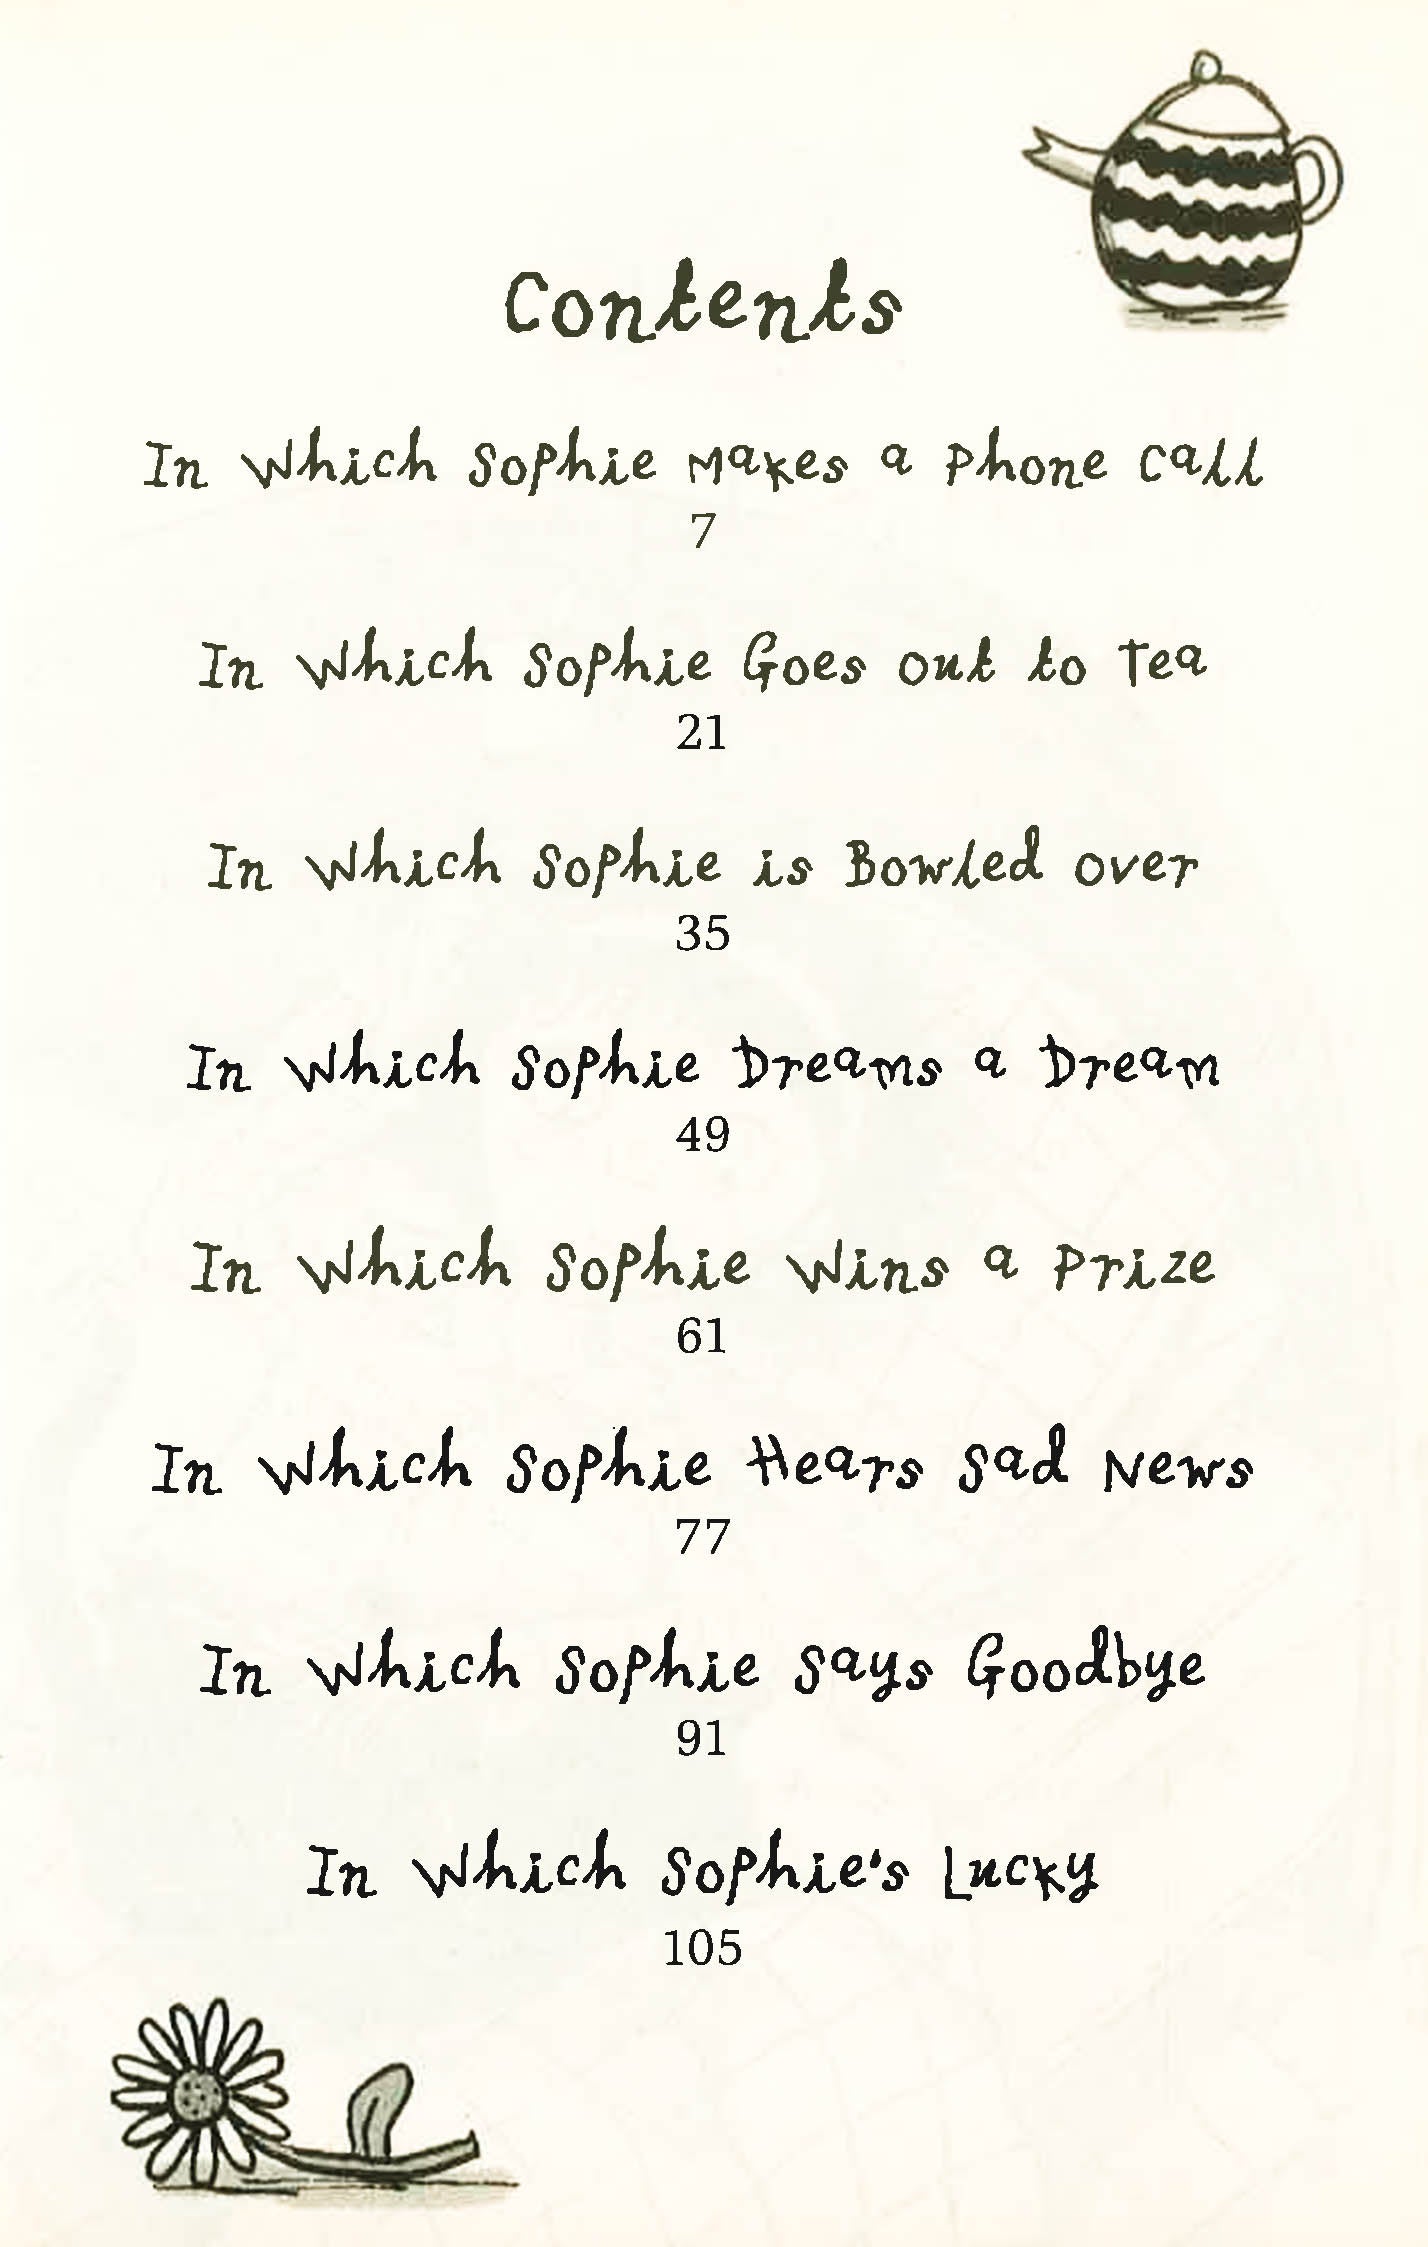 Contents
In Which Sophie Makes a Phone Call
7
In Which Sophie Goes Out to Tea
21
In Which Sophie is Bowled Over
35
In Which Sophie Dreams a Dream
49
In Which Sophie Wins a Prize
61
In Which Sophie Hears Sad News
77
In Which Sophie Says Goodbye
91
In Which Sophie's Lucky
105